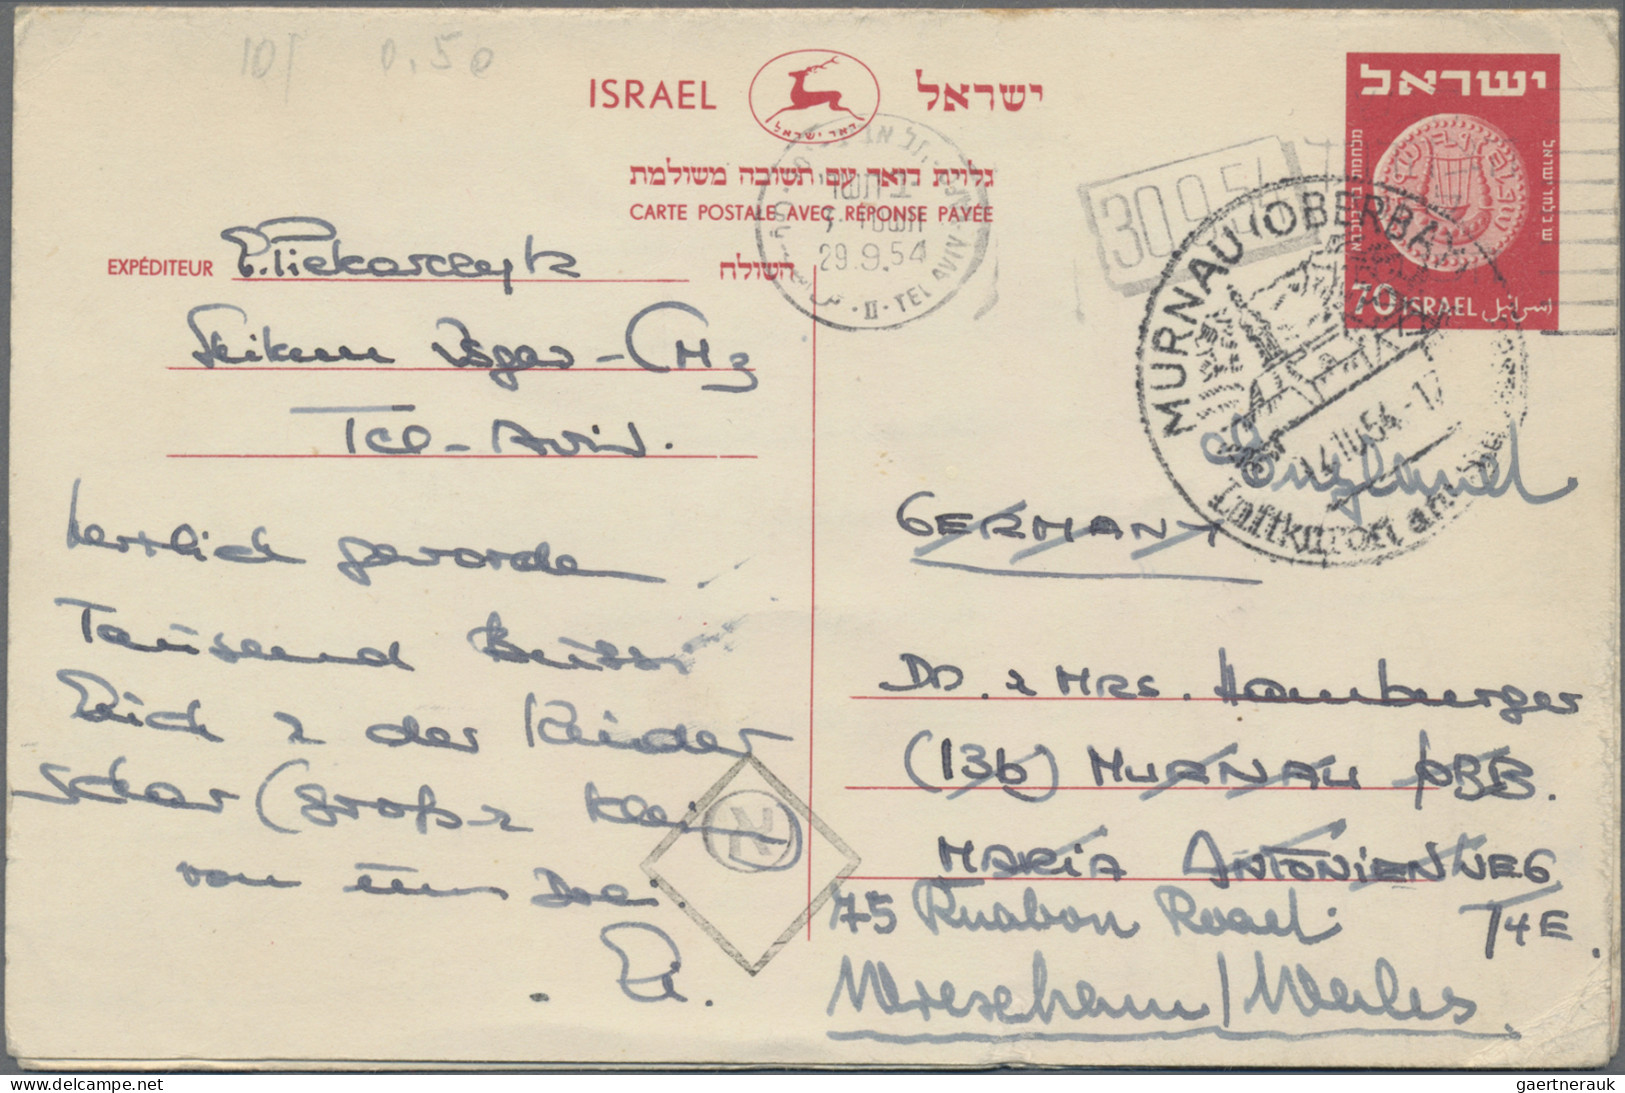 10T 0.50
ISRAEL ישראל
דאר ישראל
גלוית דואר עם תשובה משולמת
CARTE POSTALE AVEC RÉPONSE PAYÉE
EXPÉDITEUR השולח
Tel-Aviv.
herrlich geworden
Tausend Bussi
Euch & der Kinder
schar (groß & klein)
von uns Drei.
29.9.54
II - TEL AVIV
30.9.54
ישראל
70 ISRAEL اسرائيل
MURNAU (OBERBAY)
14.10.54-17
Luftkurort am
England
GERMANY
DR. & MRS. Hamburger
(13b) MURNAU OBB.
MARIA ANTONIENWEG
14E
75 Ruabon Road
Wrescham / Wales
gaertnerauk